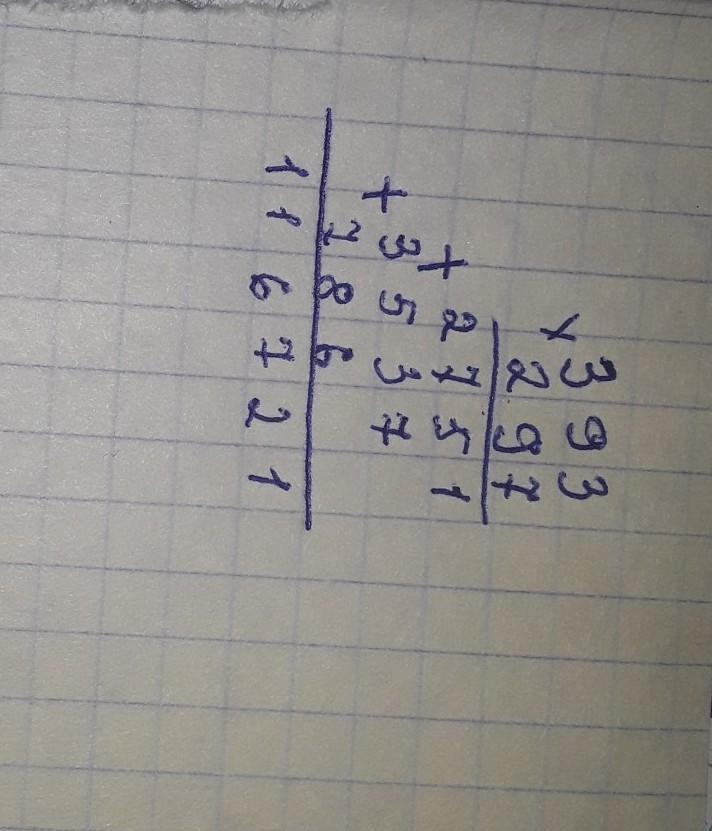 × 393
297
+ 2751
+ 3537
786
116721